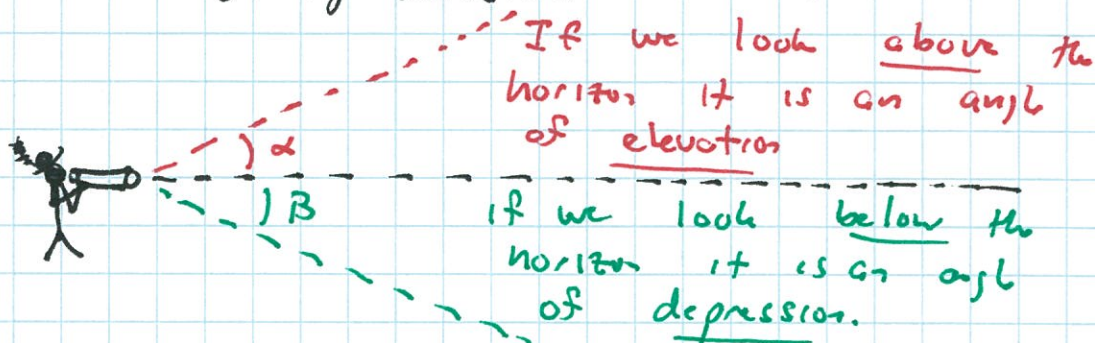 If we look above the
horizon it is an angle
of elevation
α
β
if we look below the
horizon it is an angle
of depression.